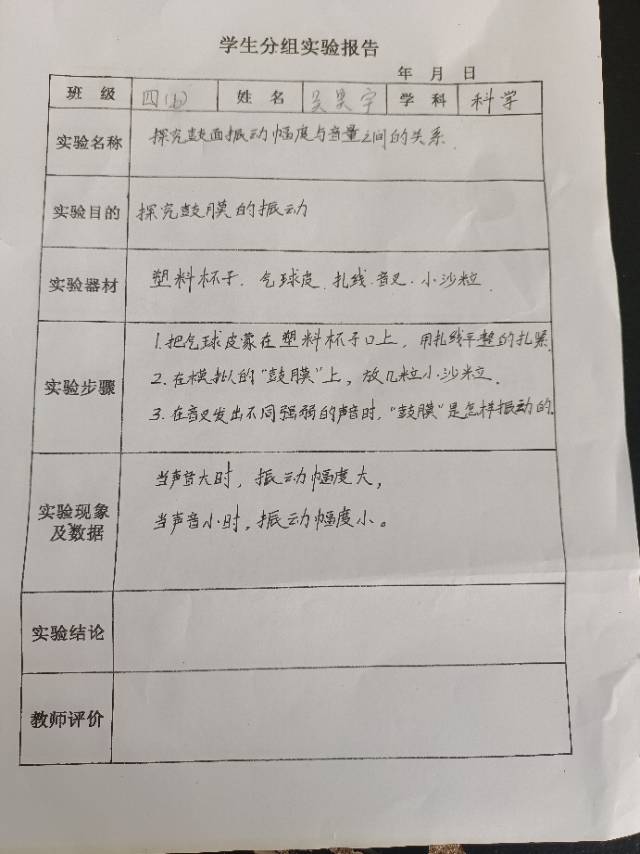 学生分组实验报告
年 月 日
班 级 四 姓 名 吴昊宇 学 科 科学
实验名称 探究鼓面振动幅度与音量之间的关系.
实验目的 探究鼓膜的振动
实验器材 塑料杯子. 气球皮. 扎线. 音叉. 小沙粒.
1.把气球皮蒙在塑料杯子口上, 用扎线平整的扎紧.
实验步骤 2.在模拟的“鼓膜”上, 放几粒小沙粒.
3.在音叉发出不同强弱的声音时, “鼓膜”是怎样振动的.
当声音大时, 振动幅度大,
实验现象
及数据
当声音小时, 振动幅度小。
实验结论
教师评价